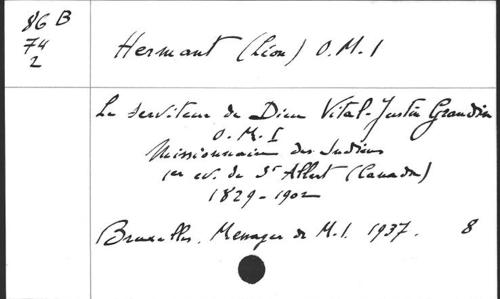 86 B
74
2
Hermant (Léon) O.M.I
Le serviteur de Dieu Vital-Justin Grandin
O.M.I
Missionnaire des Indiens
1er év. de St Albert (Canada)
1829-1902
Bruxelles. Messager de M.I. 1937. 8